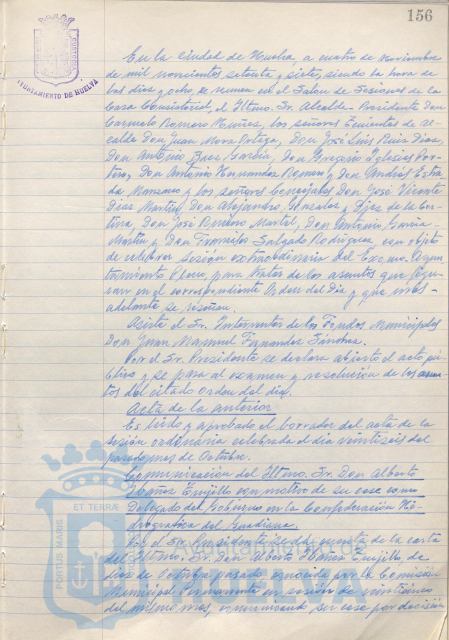 156
AYUNTAMIENTO DE HUELVA
En la ciudad de Huelva, a cuatro de noviembre
de mil novecientos setenta y siete, siendo la hora de
las diez y ocho, se reunen en el Salón de Sesiones de la
Casa Consistorial, el Iltmo. Sr. Alcalde-Presidente Don
Carmelo Romero Núñez, los señores Tenientes de Al-
calde Don Juan Mora Ortega, Don José Luis Ruiz Díaz,
Don Antonio Báez García, Don Gregorio Iglesias Por-
tero, Don Antonio Hernández Romero y Don Andrés Estra-
da Manzano y los señores Concejales Don José Vicente
Díaz Martín, Don Alejandro González y Díez de la Cor-
tina, Don José Romero Martel, Don Antonio García
Martín y Don Francisco Salgado Rodríguez con objeto
de celebrar Sesión extraordinaria del Excmo. Ayun-
tamiento Pleno, para tratar de los asuntos que figu-
ran en el correspondiente Orden del Día y que más
adelante se reseñan.
Asiste el Sr. Interventor de los Fondos Municipales
Don Juan Manuel Fernández Sánchez.
Por el Sr. Presidente se declara abierto el acto pú-
blico y se pasa al examen y resolución de los asun-
tos del citado orden del día.
Acta de la anterior
Es leído y aprobado el borrador del acta de la
sesión ordinaria celebrada el día veintiseis del
pasado mes de Octubre.
Comunicación del Iltmo. Sr. Don Alberto
Trujillo con motivo de su cese como
Delegado del Gobierno en la Confederación Hi-
drográfica del Guadiana.
Por el Sr. Presidente se da cuenta de la carta
del Iltmo. Sr. Don Alberto Trujillo de
diez de Octubre pasado conocida por la Comisión
Municipal Permanente en sesión de
del mismo mes, comunicando su cese por decisión
PORTUS MARIS ET TERRAE